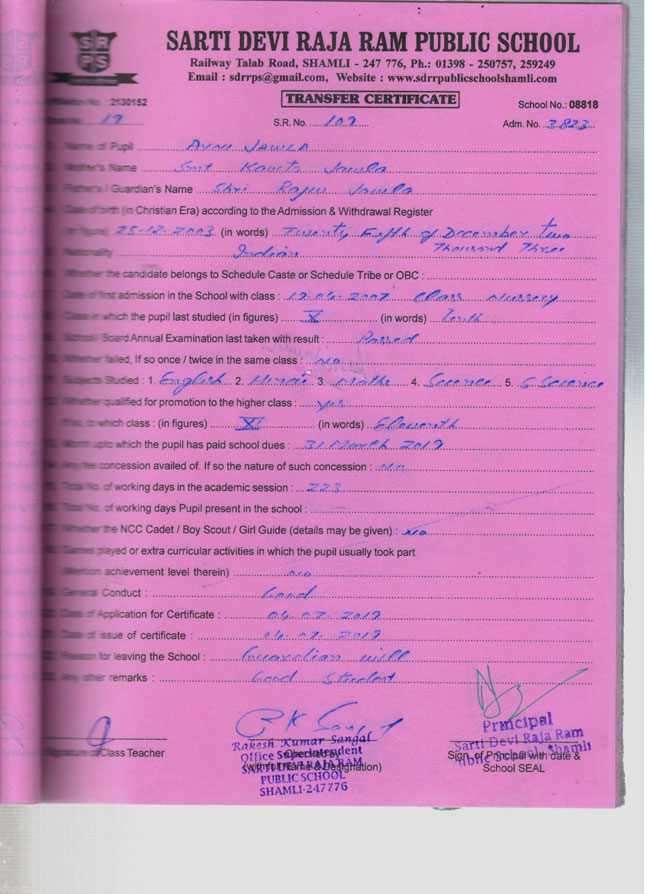 SRPS
SARTI DEVI RAJA RAM PUBLIC SCHOOL
Railway Talab Road, SHAMLI - 247 776, Ph.: 01398 - 250757, 259249
Email : sdrrps@gmail.com, Website : www.sdrrpublicschoolshamli.com
TRANSFER CERTIFICATE
No. 2130152 School No.: 08818
19 S.R. No. 109 Adm. No. 3823
Name of Pupil Jawla
Mother's Name Smt Kavita Jawla
Father's / Guardian's Name Shri Rajeev Jawla
Date of birth (in Christian Era) according to the Admission & Withdrawal Register
(in figure) 25-12-2003 (in words) Twenty Fifth of December two
Thousand Three
Nationality Indian
Whether the candidate belongs to Schedule Caste or Schedule Tribe or OBC :
Date of first admission in the School with class : Class Nursery
Class in which the pupil last studied (in figures) X (in words) Tenth
School / Board Annual Examination last taken with result : Passed
Whether failed, If so once / twice in the same class : No
Subjects Studied : 1. English 2. Hindi 3. Maths 4. Science 5. S. Science
Whether qualified for promotion to the higher class : yes
If so, to which class : (in figures) XI (in words) Eleventh
Month upto which the pupil has paid school dues : 31 March 2019
Any fee concession availed of. If so the nature of such concession : No
Total No. of working days in the academic session : 223
Total No. of working days Pupil present in the school :
Whether the NCC Cadet / Boy Scout / Girl Guide (details may be given) : No
Games played or extra curricular activities in which the pupil usually took part
(Mention achievement level therein) No
General Conduct : Good
Date of Application for Certificate : 04.07.2019
Date of issue of certificate : 04.07.2019
Reason for leaving the School : Guardian will
Any other remarks : Good Student
Signature of Class Teacher
Rakesh Kumar Sangal
Office Superintendent
Checked by
SARTI DEVI RAJA RAM
(with full Name & Designation)
PUBLIC SCHOOL
SHAMLI-247776
Principal
Sarti Devi Raja Ram
Public School, Shamli
Sign. of Principal with date &
School SEAL